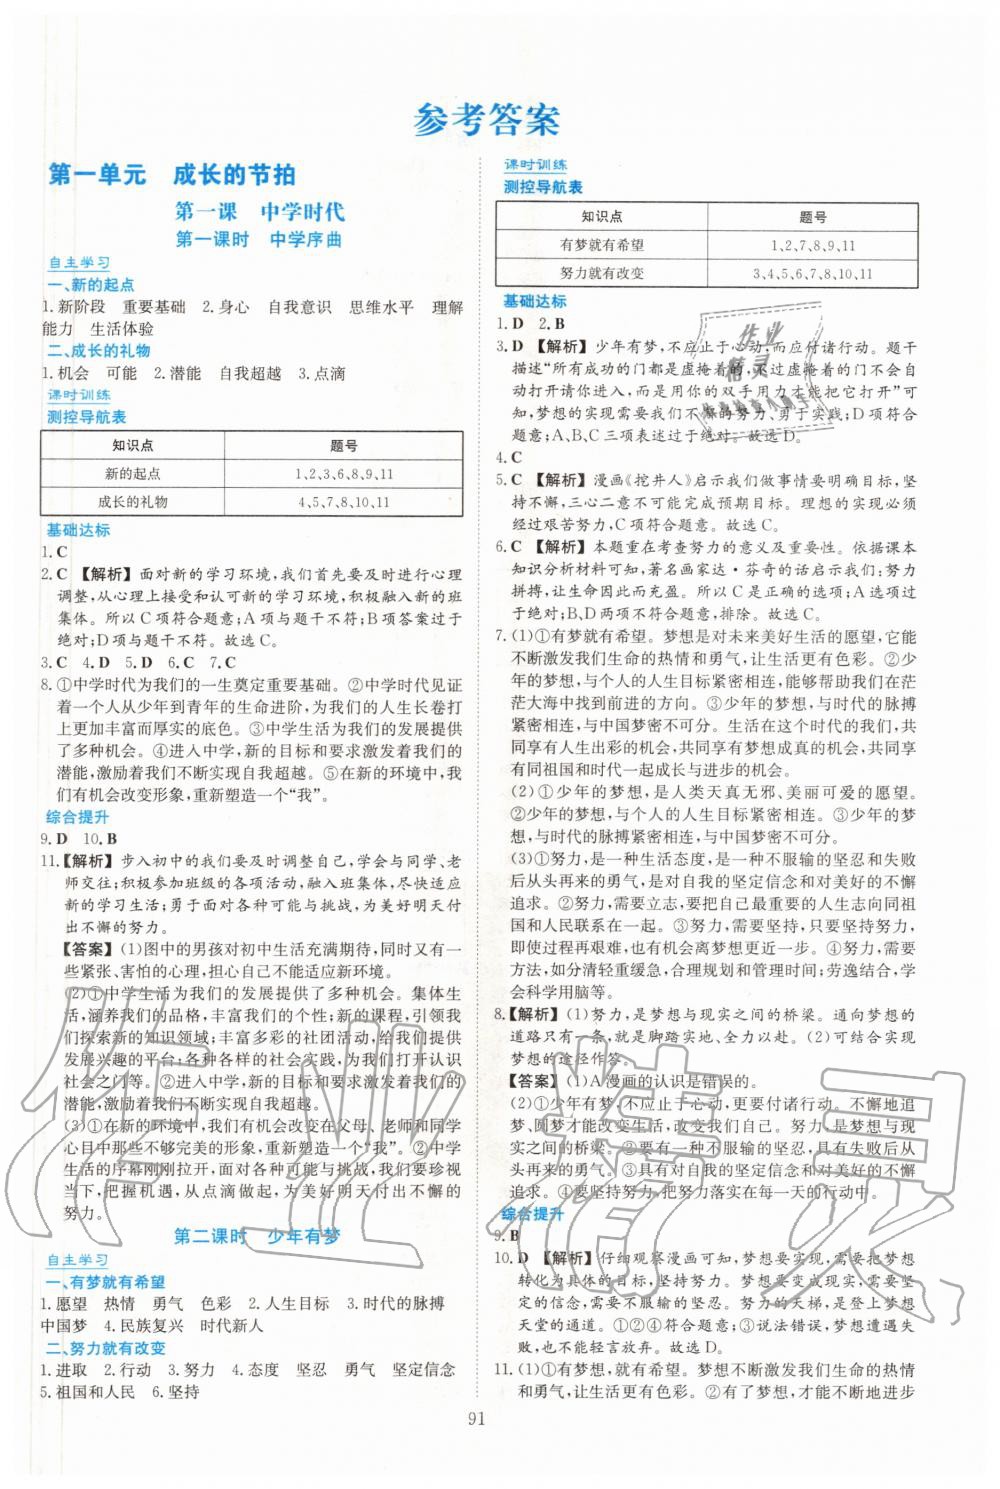 参考答案
第一单元　成长的节拍
第一课　中学时代
第一课时　中学序曲
自主学习
一、新的起点
1.新阶段　重要基础　2.身心　自我意识　思维水平　理解
能力　生活体验
二、成长的礼物
1.机会　可能　2.潜能　自我超越　3.点滴
课时训练
测控导航表
知识点　题号
新的起点　1,2,3,6,8,9,11
成长的礼物　4,5,7,8,10,11
基础达标
1.C
2.C 【解析】面对新的学习环境,我们首先要及时进行心理
调整,从心理上接受和认可新的学习环境,积极融入新的班
集体。所以C项符合题意;A项与题干不符;B项答案过于
绝对;D项与题干不符。故选C。
3.C　4.D　5.D　6.C　7.C
8.①中学时代为我们的一生奠定重要基础。②中学时代见证
着一个人从少年到青年的生命进阶,为我们的人生长卷打
上更加丰富而厚实的底色。③中学生活为我们的发展提供
了多种机会。④进入中学,新的目标和要求激发着我们的
潜能,激励着我们不断实现自我超越。⑤在新的环境中,我
们有机会改变形象,重新塑造一个“我”。
综合提升
9.D　10.B
11.【解析】步入初中的我们要及时调整自己,学会与同学、老
师交往;积极参加班级的各项活动,融入班集体,尽快适应
新的学习生活;勇于面对各种可能与挑战,为美好明天付
出不懈的努力。
【答案】(1)图中的男孩对初中生活充满期待,同时又有一
些紧张、害怕的心理,担心自己不能适应新环境。
(2)①中学生活为我们的发展提供了多种机会。集体生
活,涵养我们的品格,丰富我们的个性;新的课程,引领我
们探索新的知识领域;丰富多彩的社团活动,给我们提供
发展兴趣的平台;各种各样的社会实践,为我们打开认识
社会之门等。②进入中学,新的目标和要求激发着我们的
潜能,激励着我们不断实现自我超越。
(3)①在新的环境中,我们有机会改变在父母、老师和同学
心目中那些不够完美的形象,重新塑造一个“我”。②中学
生活的序幕刚刚拉开,面对各种可能与挑战,我们要珍视
当下,把握机遇,从点滴做起,为美好明天付出不懈的
努力。
第二课时　少年有梦
自主学习
一、有梦就有希望
1.愿望　热情　勇气　色彩　2.人生目标　3.时代的脉搏
中国梦　4.民族复兴　时代新人
二、努力就有改变
1.进取　2.行动　3.努力　4.态度　坚忍　勇气　坚定信念
5.祖国和人民　6.坚持
课时训练
测控导航表
知识点　题号
有梦就有希望　1,2,7,8,9,11
努力就有改变　3,4,5,6,7,8,10,11
基础达标
1.D　2.B
3.D 【解析】少年有梦,不应止于心动,而应付诸行动。题干
描述“所有成功的门都是虚掩着的,而不是虚掩着的门会
自动打开请你进入,而是用你的双手用力才能把它打开”可
知,梦想的实现需要我们不懈的努力、勇于实践;D项符合
题意;A、B、C三项表述过于绝对。故选D。
4.C
5.C 【解析】漫画《挖井人》启示我们做事情要明确目标,坚
持不懈,三心二意不可能完成预期目标。理想的实现必须
经过艰苦努力,C项符合题意。故选C。
6.C 【解析】本题重在考查努力的意义及重要性。依据课本
知识分析材料可知,著名画家达·芬奇的话启示我们:努力
拼搏,让生命因此而充盈。所以C是正确的选项;A选项过
于绝对;B、D两项不符合题意,排除。故选C。
7.(1)①有梦就有希望。梦想是对未来美好生活的愿望,它能
不断激发我们生命的热情和勇气,让生活更有色彩。②少
年的梦想,与个人的人生目标紧密相连,能使我们在茫
茫大海中找到前进的方向。③少年的梦想,与时代的脉搏
紧密相连,与中国梦密不可分。生活在这个时代的我们,共
同享有人生出彩的机会,共同享有梦想成真的机会,共同享
有同祖国和时代一起成长与进步的机会。
(2)①少年的梦想,是人类天真无邪、美丽可爱的愿望。
②少年的梦想,与个人的人生目标紧密相连。③少年的梦
想,与时代的脉搏紧密相连,与中国梦密不可分。
(3)①努力,是一种生活态度,是一种不服输的坚忍和失败
后从头再来的勇气,是对自我的坚定信念和对美好的不懈
追求。②努力,需要立志,要把自己最重要的人生志向同祖
国和人民联系在一起。③努力,需要坚持。只要坚持努力,
即使过程再艰难,也有机会离梦想更近一步。④努力,需要
方法,如分清轻重缓急,合理规划和管理时间;劳逸结合,学
会科学用脑等。
8.【解析】(1)努力,是梦想与现实之间的桥梁。通向梦想的
道路只有一条,就是脚踏实地、全力以赴。(2)可结合实现
梦想的途径作答。
【答案】(1)A漫画的认识是错误的。
(2)①少年有梦,不应止于心动,更要付诸行动。不懈地追
梦、圆梦才能改变生活,改变我们自己。努力,是梦想与现
实之间的桥梁。②要有一种不服输的坚忍,具有失败后从
头再来的勇气。③具有对自我的坚定信念和对美好的不懈
追求。④要坚持努力,把坚持落实在每一天的行动中。
综合提升
9.B
10.D 【解析】仔细观察漫画可知,梦想要实现,需要把梦想
转化为具体的目标,坚持努力。梦想要实现,需要具有坚
定的信念,需要不服输的坚忍。努力的天梯,是登上梦想
天堂的通道。①②④符合题意;③说法错误,梦想也遭遇
失败。故选D。
11.(1)①有梦想,就有希望。梦想不断激发我们生命的热情
和勇气,让生活更有色彩。②有了梦想,才能不断地进步
91
作业精灵
作业
精灵